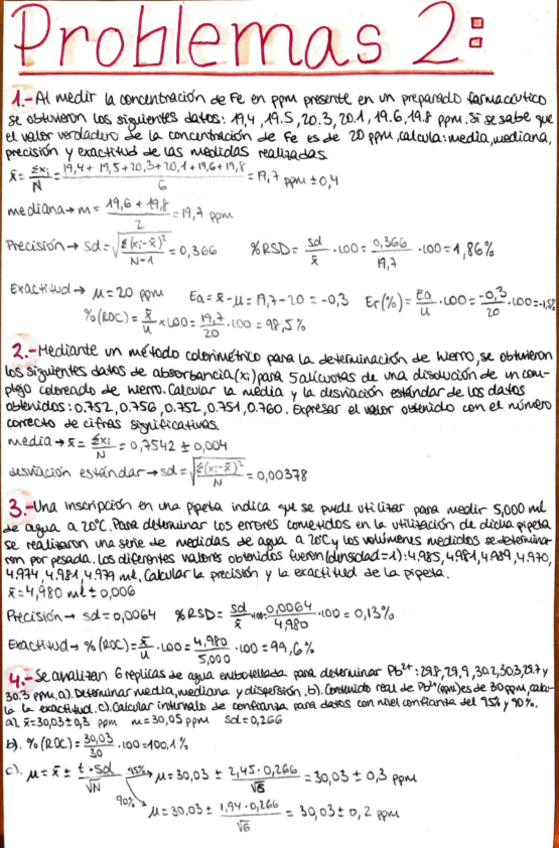 Problemas 2:
1.- Al medir la concentración de Fe en ppm presente en un preparado farmacéutico
se obtuvieron los siguientes datos: 19,4, 19.5, 20.3, 20.1, 19.6, 19.8 ppm. Si se sabe que
el valor verdadero de la concentración de Fe es de 20 ppm, calcula: media, mediana,
precisión y exactitud de las medidas realizadas.
x̄ = Σxi/N = 19,4 + 19,5 + 20,3 + 20,1 + 19,6 + 19,8 / 6 = 19,7 ppm ± 0,4
mediana → m = 19,6 + 19,8 / 2 = 19,7 ppm
Precisión → sd = √Σ(xi-x̄)²/N-1 = 0,366 %RSD = sd/x̄ · 100 = 0,366/19,7 · 100 = 1,86%
Exactitud → μ = 20 ppm Ea = x̄ - μ = 19,7 - 20 = -0,3 Er(%) = Ea/μ · 100 = -0,3/20 · 100 =
%(ROC) = x̄/μ × 100 = 19,7/20 · 100 = 98,5%
2.- Mediante un método colorimétrico para la determinación de hierro, se obtuvieron
los siguientes datos de absorbancia (xi) para 5 alícuotas de una disolución de un com-
plejo coloreado de hierro. Calcular la media y la desviación estándar de los datos
obtenidos: 0.752, 0.756, 0.752, 0.751, 0.760. Expresar el valor obtenido con el número
correcto de cifras significativas.
media → x̄ = Σxi/N = 0,7542 ± 0,004
desviación estándar → sd = √Σ(xi-x̄)²/N = 0,00378
3.- Una inscripción en una pipeta indica que se puede utilizar para medir 5,000 ml
de agua a 20°C. Para determinar los errores cometidos en la utilización de dicha pipeta
se realizaron una serie de medidas de agua a 20°C y los volúmenes medidos se determina-
ron por pesada. Los diferentes valores obtenidos fueron (densidad=1): 4.985, 4.981, 4.989, 4.970,
4.974, 4.981, 4.979 ml. Calcular la precisión y la exactitud de la pipeta.
x̄ = 4,980 ml ± 0,006
Precisión → sd = 0,0064 %RSD = sd/x̄ · 100 = 0,0064/4,980 · 100 = 0,13%
Exactitud → %(ROC) = x̄/μ · 100 = 4,980/5,000 · 100 = 99,6%
4.- Se analizan 6 réplicas de agua embotellada para determinar Pb²⁺: 29.8, 29,9, 30.2, 30.3, 29.7 y
30.3 ppm. a). Determinar media, mediana y dispersión. b). Contenido real de Pb²⁺ (ppm) es de 30 ppm, calcu-
la la exactitud. c). Calcular intervalo de confianza para datos con nivel confianza del 95% y 90%.
a). x̄ = 30,03 ± 0,3 ppm m = 30,05 ppm sd = 0,266
b). %(ROC) = 30,03/30 · 100 = 100,1%
c). μ = x̄ ± t · sd/√N 95% → μ = 30,03 ± 2,45 · 0,266/√6 = 30,03 ± 0,3 ppm
90% → μ = 30,03 ± 1,94 · 0,266/√6 = 30,03 ± 0,2 ppm